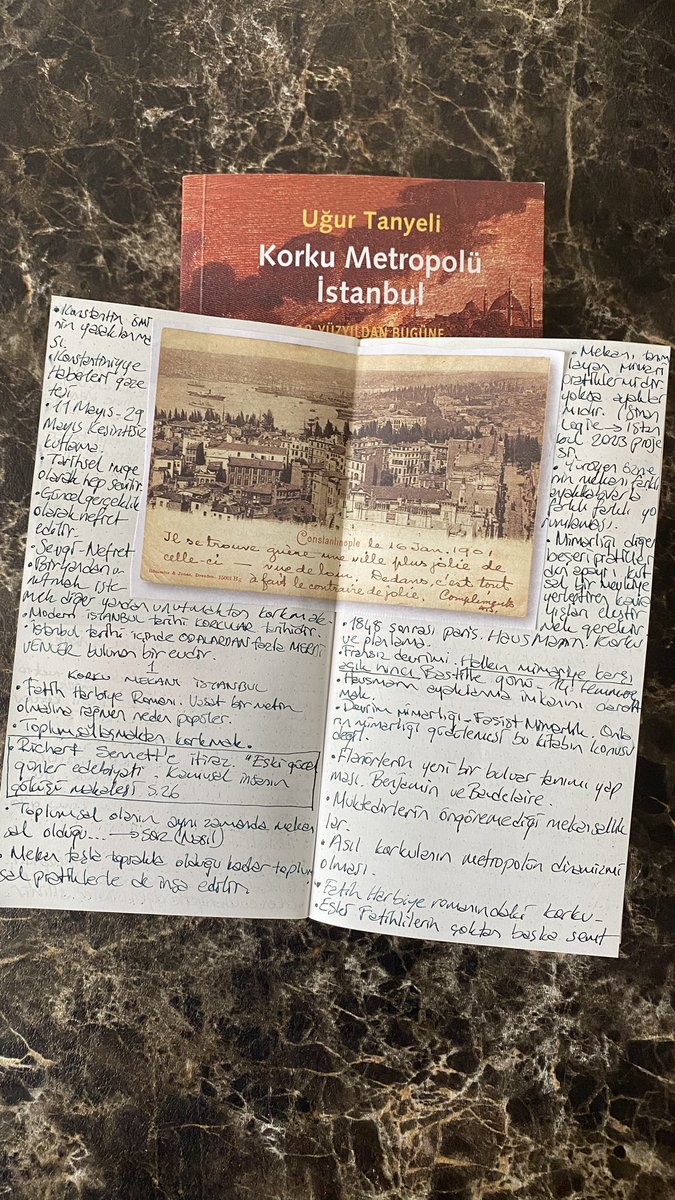 Uğur Tanyeli
Korku Metropolü
İstanbul
YÜZYILDAN BUGÜNE
• Konstantin ismi
nin yasaklanma
sı.
• Konstantiniyye
Haberleri gaze
tesi
• 11 Mayıs - 29
Mayıs Kesintisiz
kutlama.
• Tarihsel imge
olarak hep sevilir
• Güncel gerçeklik
olarak nefret
edilir.
• Sevgi - Nefret
• Bir yandan u
nutmak iste
mek diğer yandan unutmaktan korkmak.
• Modern İSTANBUL tarihi KORKULAR tarihidir.
• İstanbul tarihi içinde ODALARDAN fazla MERDİ
VENLER bulunan bir evdir.
1
KORKU MEKANI İSTANBUL
• Fatih Harbiye Romanı. Vasat bir metin
olmasına rağmen neden popüler.
• Toplumsallaşmaktan korkmak.
• Richart Sennett'e itiraz. "Eski güzel
günler edebiyatı. Kamusal insanın
çöküşü makalesi S.26
• Toplumsal olanın aynı zamanda mekan
sal olduğu... → SOR (Nasıl)
• Mekan taşla toprakla olduğu kadar toplum
sal pratiklerle de inşa edilir.
Constantinople le 16 Jan. 1901
Il se trouve guère une ville plus jolie de
celle-ci — vue de loin. Dedans, c'est tout
à fait le contraire de jolie. Compliments
• Mekanı, tanım
layan mimari
pratikler midir
yoksa ayaklar
mıdır.
→ İstan
bul 2023 proje
si.
• Yürüyen özne
nin mekanı farklı
ayakkabılarla
farklı farklı yo
rumlaması.
• Mimarlığı diğer
beşeri pratikler
den apayrı kut
sal bir mevkiye
yerleştiren kavra
yışları eleştir
mek gerekir.
• 1848 sonrası Paris. Hausmann. Korku
ve planlama.
• Fransız devrimi. Halkın mimariye karşı
açık hıncı. Bastille günü - 14 Temmuz
• Hausmann ayaklanma imkanını daralt
mak.
• Devrim Mimarlığı - Faşist Mimarlık. Onla
rın mimarlığı güzellemesi bu kitabın konusu
değil.
• Flanörlerin yeni bir bulvar tanımı yap
ması. Benjamin ve Baudelaire.
• Muktedirlerin öngöremediği mekansallık
lar.
• Asıl korkuların metropolün dinamizmi
olması.
• Fatih Harbiye romanındaki korku -
• Eski Fatihlilerin çoktan başka semt